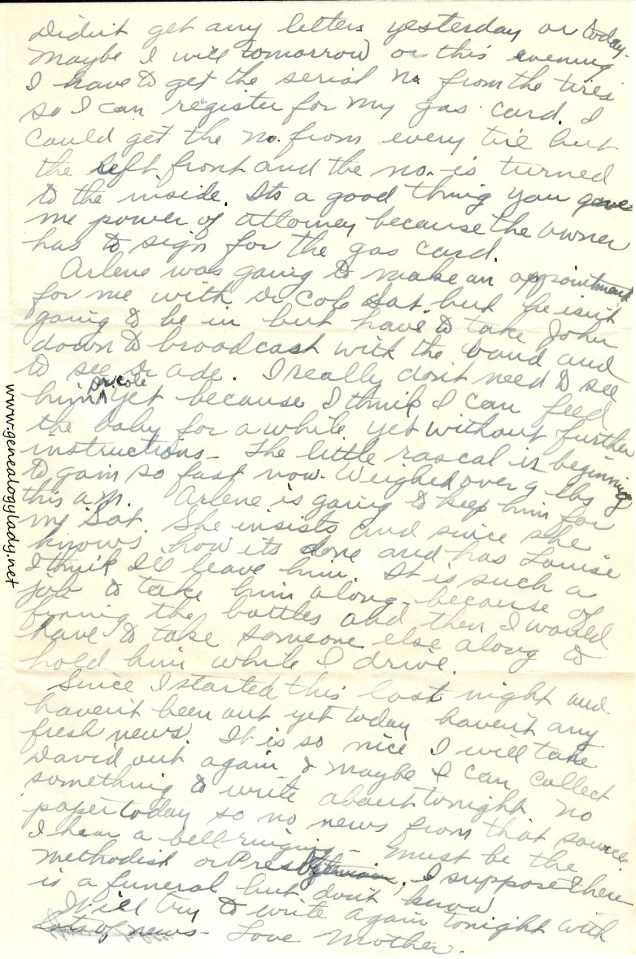 Didn't get any letters yesterday or today.
Maybe I will tomorrow or this evening.
I have to get the serial no. from the tires
so I can register for my gas card. I
could get the no. from every tire but
the left front and the no. is turned
to the inside. Its a good thing you gave
me power of attorney because the owner
has to sign for the gas card.
Arlene was going to make an appointment
for me with Dr Cole Sat. but he isn't
going to be in but have to take John
down to broadcast with the band and
to see Dr ade. I really don't need to see
Dr. Cole
him ^ yet because I think I can feed
the baby for a while yet without further
instructions - The little rascal is beginning
to gain so fast now. Weighed over 9 lbs
this a.m. Arlene is going to keep him for
my Sat. She insists and since she
knows how its done and has Louise
I think I'll leave him. It is such a
job to take him along, because of
the bottles and then I would
have to take someone else along to
hold him while I drive.
Since I started this last night and
haven't been out yet today haven't any
fresh news. It is so nice I will take
David out again & maybe I can collect
something to write about tonight. No
paper today so no news from that source.
I hear a bell ringing - Must be the
Methodist or Presbyterian. I suppose there
is a funeral but don't know
Will try to write again tonight with
lots of news - Love Mother.
www.genealogylady.net